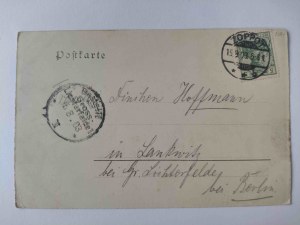 Postkarte
ZOPPOT
Fräulein Hoffmann
in Lankwitz
bei Gr. Lichterfelde
bei Berlin